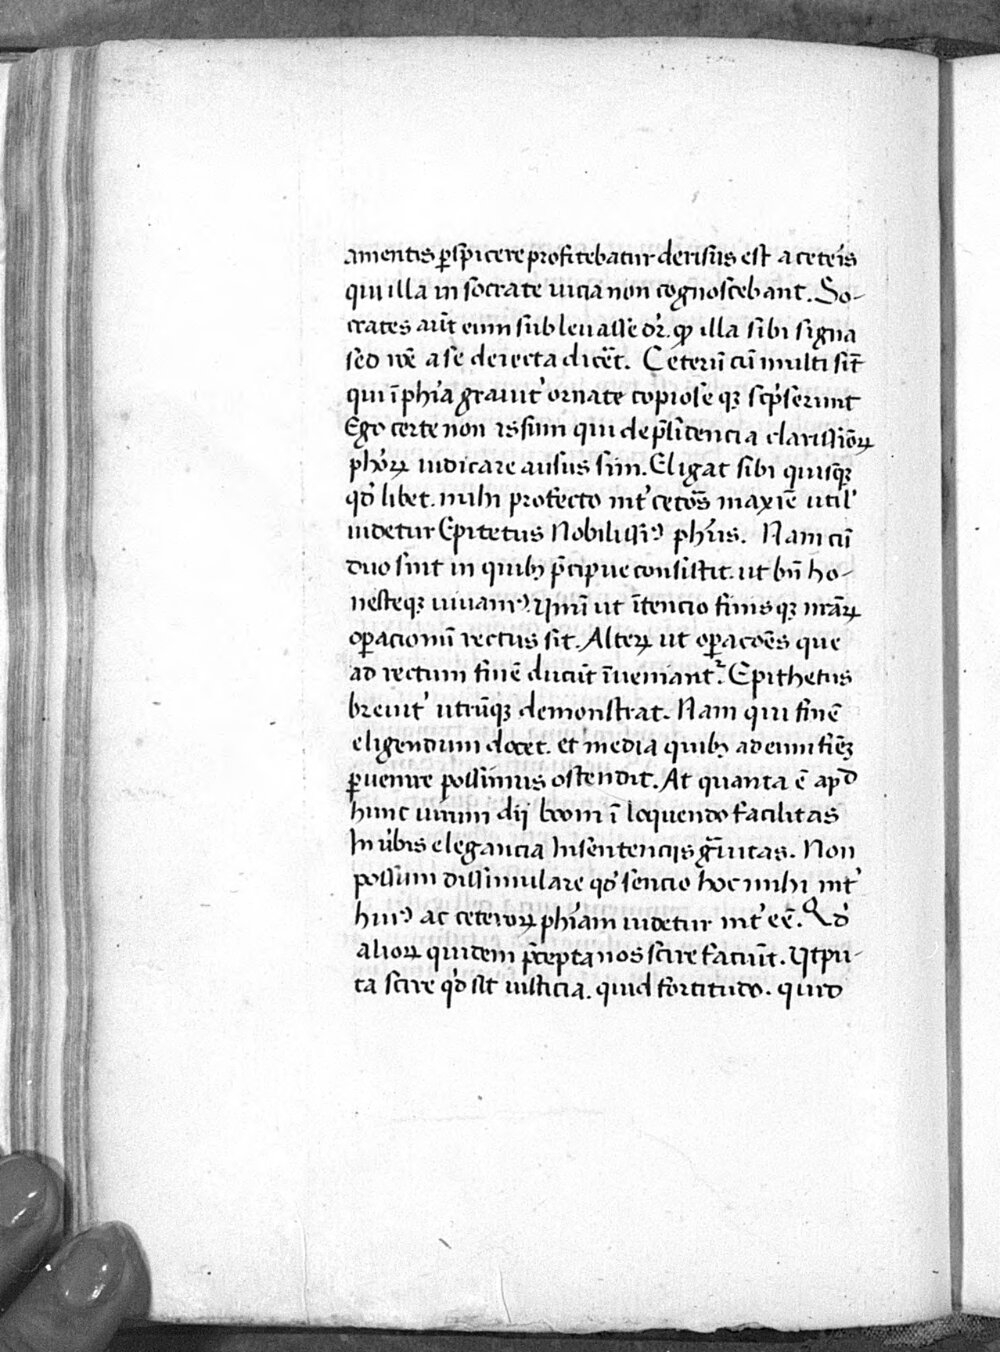 amentis ꝑspicere profitebatur derisus est a ceteris
qui illa in socrate uicia non cognoscebant. So-
crates aūt eum subleuasse dr̄. ꝙ illa sibi signa
sed rōe a se deiecta dicēt. Ceterū cū multi sīt
qui ī phīa grauit' ornate copiose qꝫ scp̄serunt
Ego certe non is sum qui de p̄stencia clarissīoꝝ
ph̄oꝝ iudicare ausus sim. Eligat sibi quisqꝫ
qd̄ libet. mihi profecto int' cetōs maxīe util'
uidetur Epitetus Nobilissiꝰ ph̄us. Nam cū
duo sint in quibꝫ p̄cipue consistit. ut bn̄ ho-
nesteqꝫ uiuamꝰ. Unū ut ītencio finis qꝫ nr̄aꝝ
oꝑacionū rectus sit. Alteꝝ ut oꝑacōes que
ad rectum finē ducūt īueniant'. Epithetus
breuit' utrūqꝫ demonstrat. Nam qui finē
eligendum docet. et media quibꝫ ad eum finē
ꝑuenire possimus ostendit. At quanta ē apd
hunc uirum dij boni ī loquendo facilitas
In ūbis elegancia In sentencijs gͣuitas. Non
possum dissimulare qd̄ sencio hoc mihi int'
huiꝰ ac ceteroꝝ ph̄iam uidetur int'eē. Qd̄
alioꝝ quidem p̄cepta nos scire faciūt. Utpu-
ta scire qd̄ sit iusticia. quid fortitudo. quid